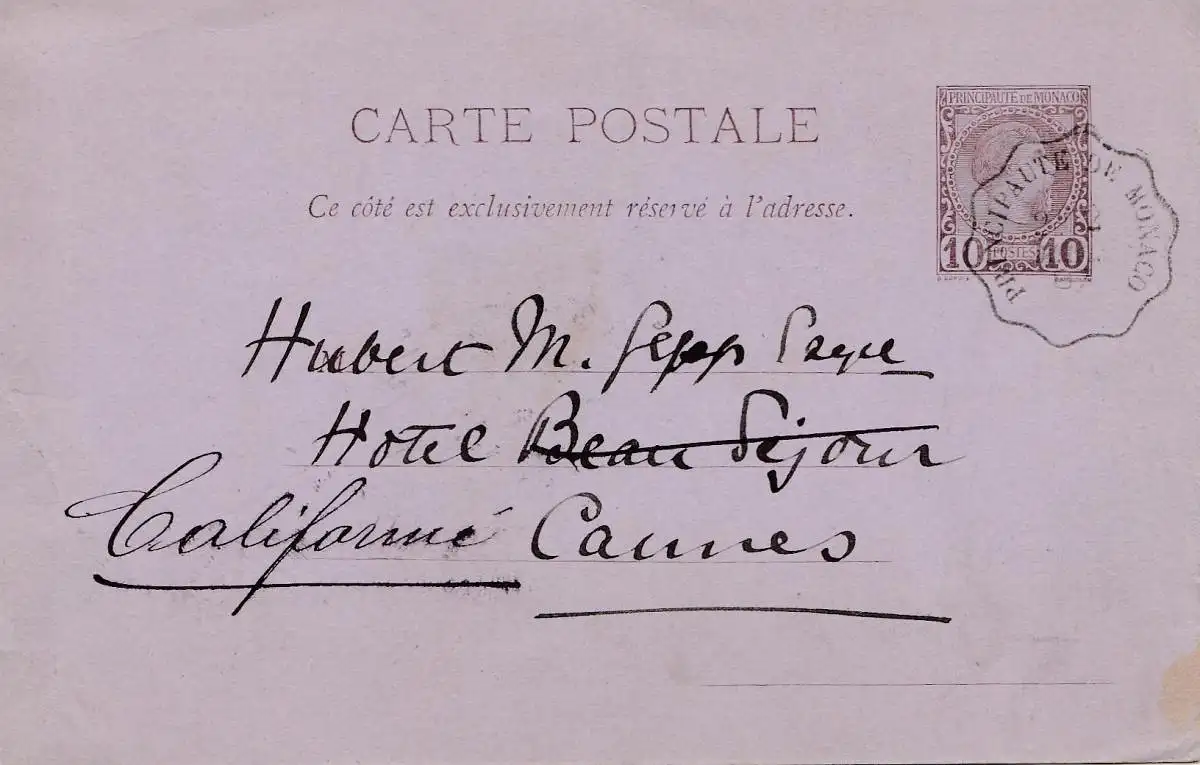 CARTE POSTALE
Ce côté est exclusivement réservé à l'adresse.
PRINCIPAUTÉ DE MONACO
10 POSTES 10
PRINCIPAUTÉ DE MONACO
Hubert M. Gepp
Hotel Beau Séjour
Californie Cannes